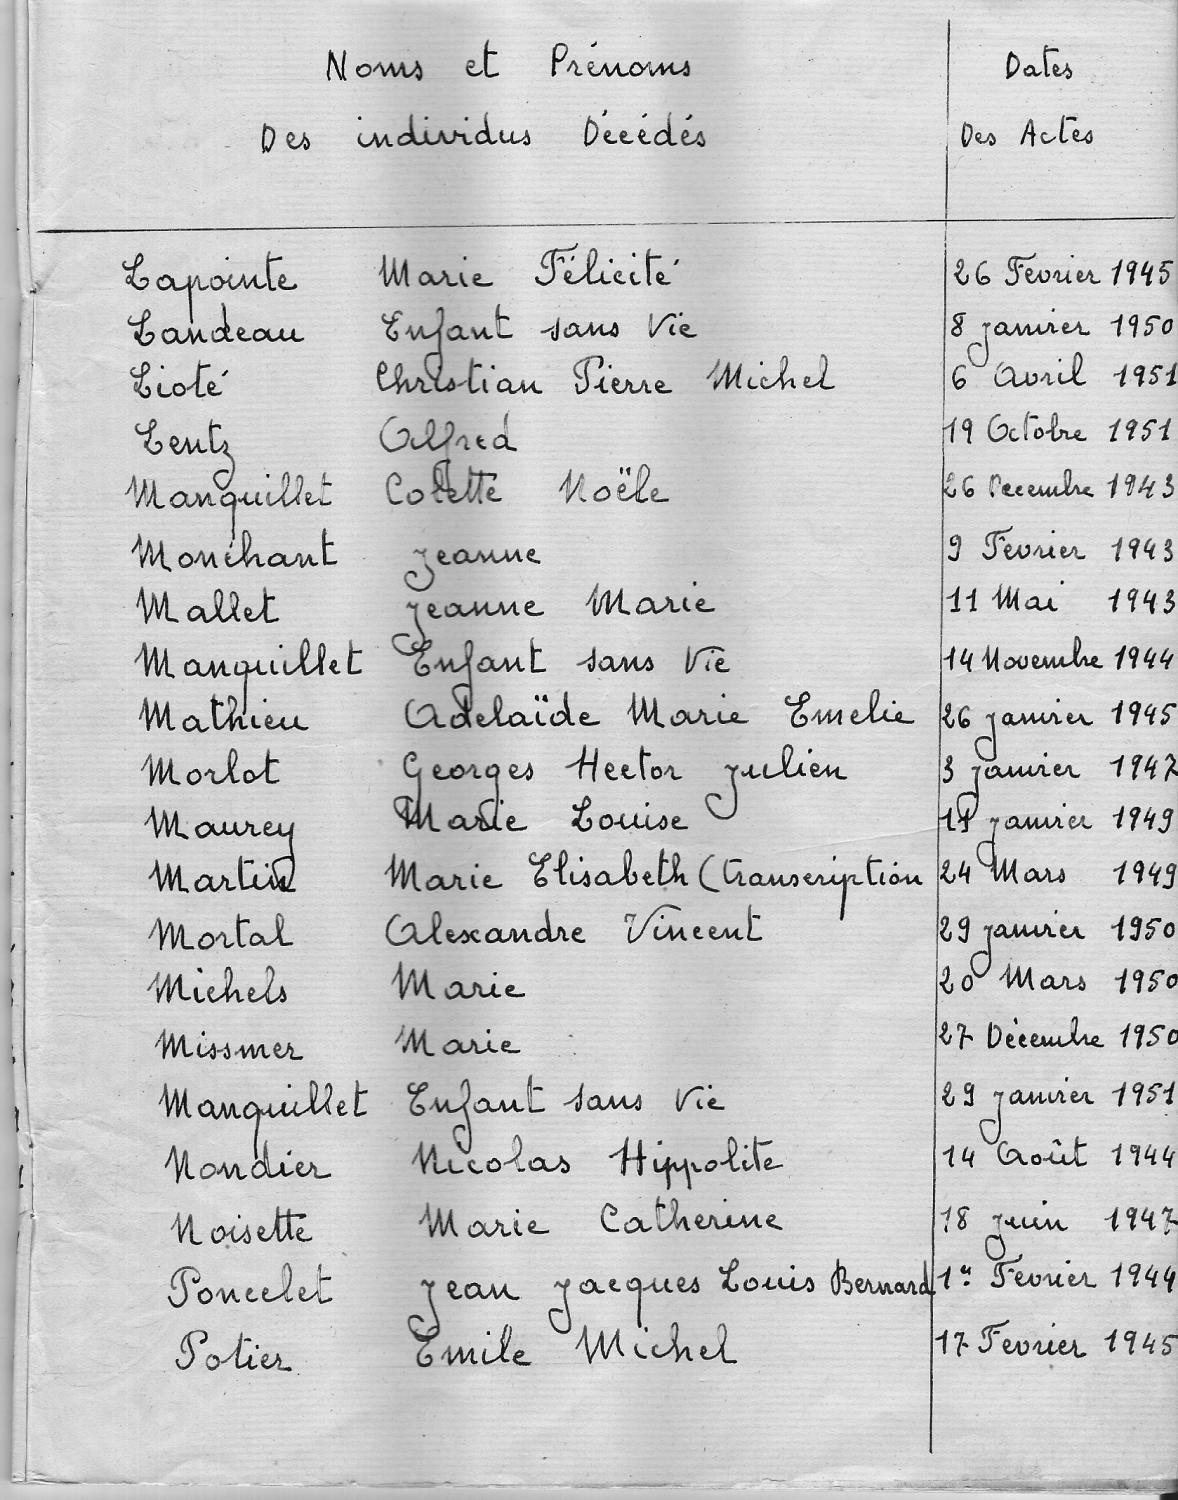 Noms et Prénoms Dates
Des individus Décédés Des Actes
Lapointe Marie Félicité 26 Fevrier 1945
Landeau Enfant sans Vie 8 janvier 1950
Lioté Christian Pierre Michel 6 Avril 1951
Lentz Alfred 19 Octobre 1951
Manquillet Colette Noële 26 Decembre 1943
Monéhant Jeanne 9 Fevrier 1943
Mallet Jeanne Marie 11 Mai 1943
Manquillet Enfant sans Vie 14 Novembre 1944
Mathieu Adelaïde Marie Emelie 26 janvier 1945
Morlot Georges Hector Julien 3 janvier 1947
Maurey Marie Louise 11 janvier 1949
Martin Marie Elisabeth (transcription 24 Mars 1949
Mortal Alexandre Vincent 29 janvier 1950
Michels Marie 20 Mars 1950
Missmer Marie 27 Décembre 1950
Manquillet Enfant sans Vie 29 janvier 1951
Nondier Nicolas Hippolite 14 Août 1944
Noisette Marie Catherine 18 juin 1947
Poncelet Jean Jacques Louis Bernard 1er Fevrier 1944
Potier Emile Michel 17 Fevrier 1945